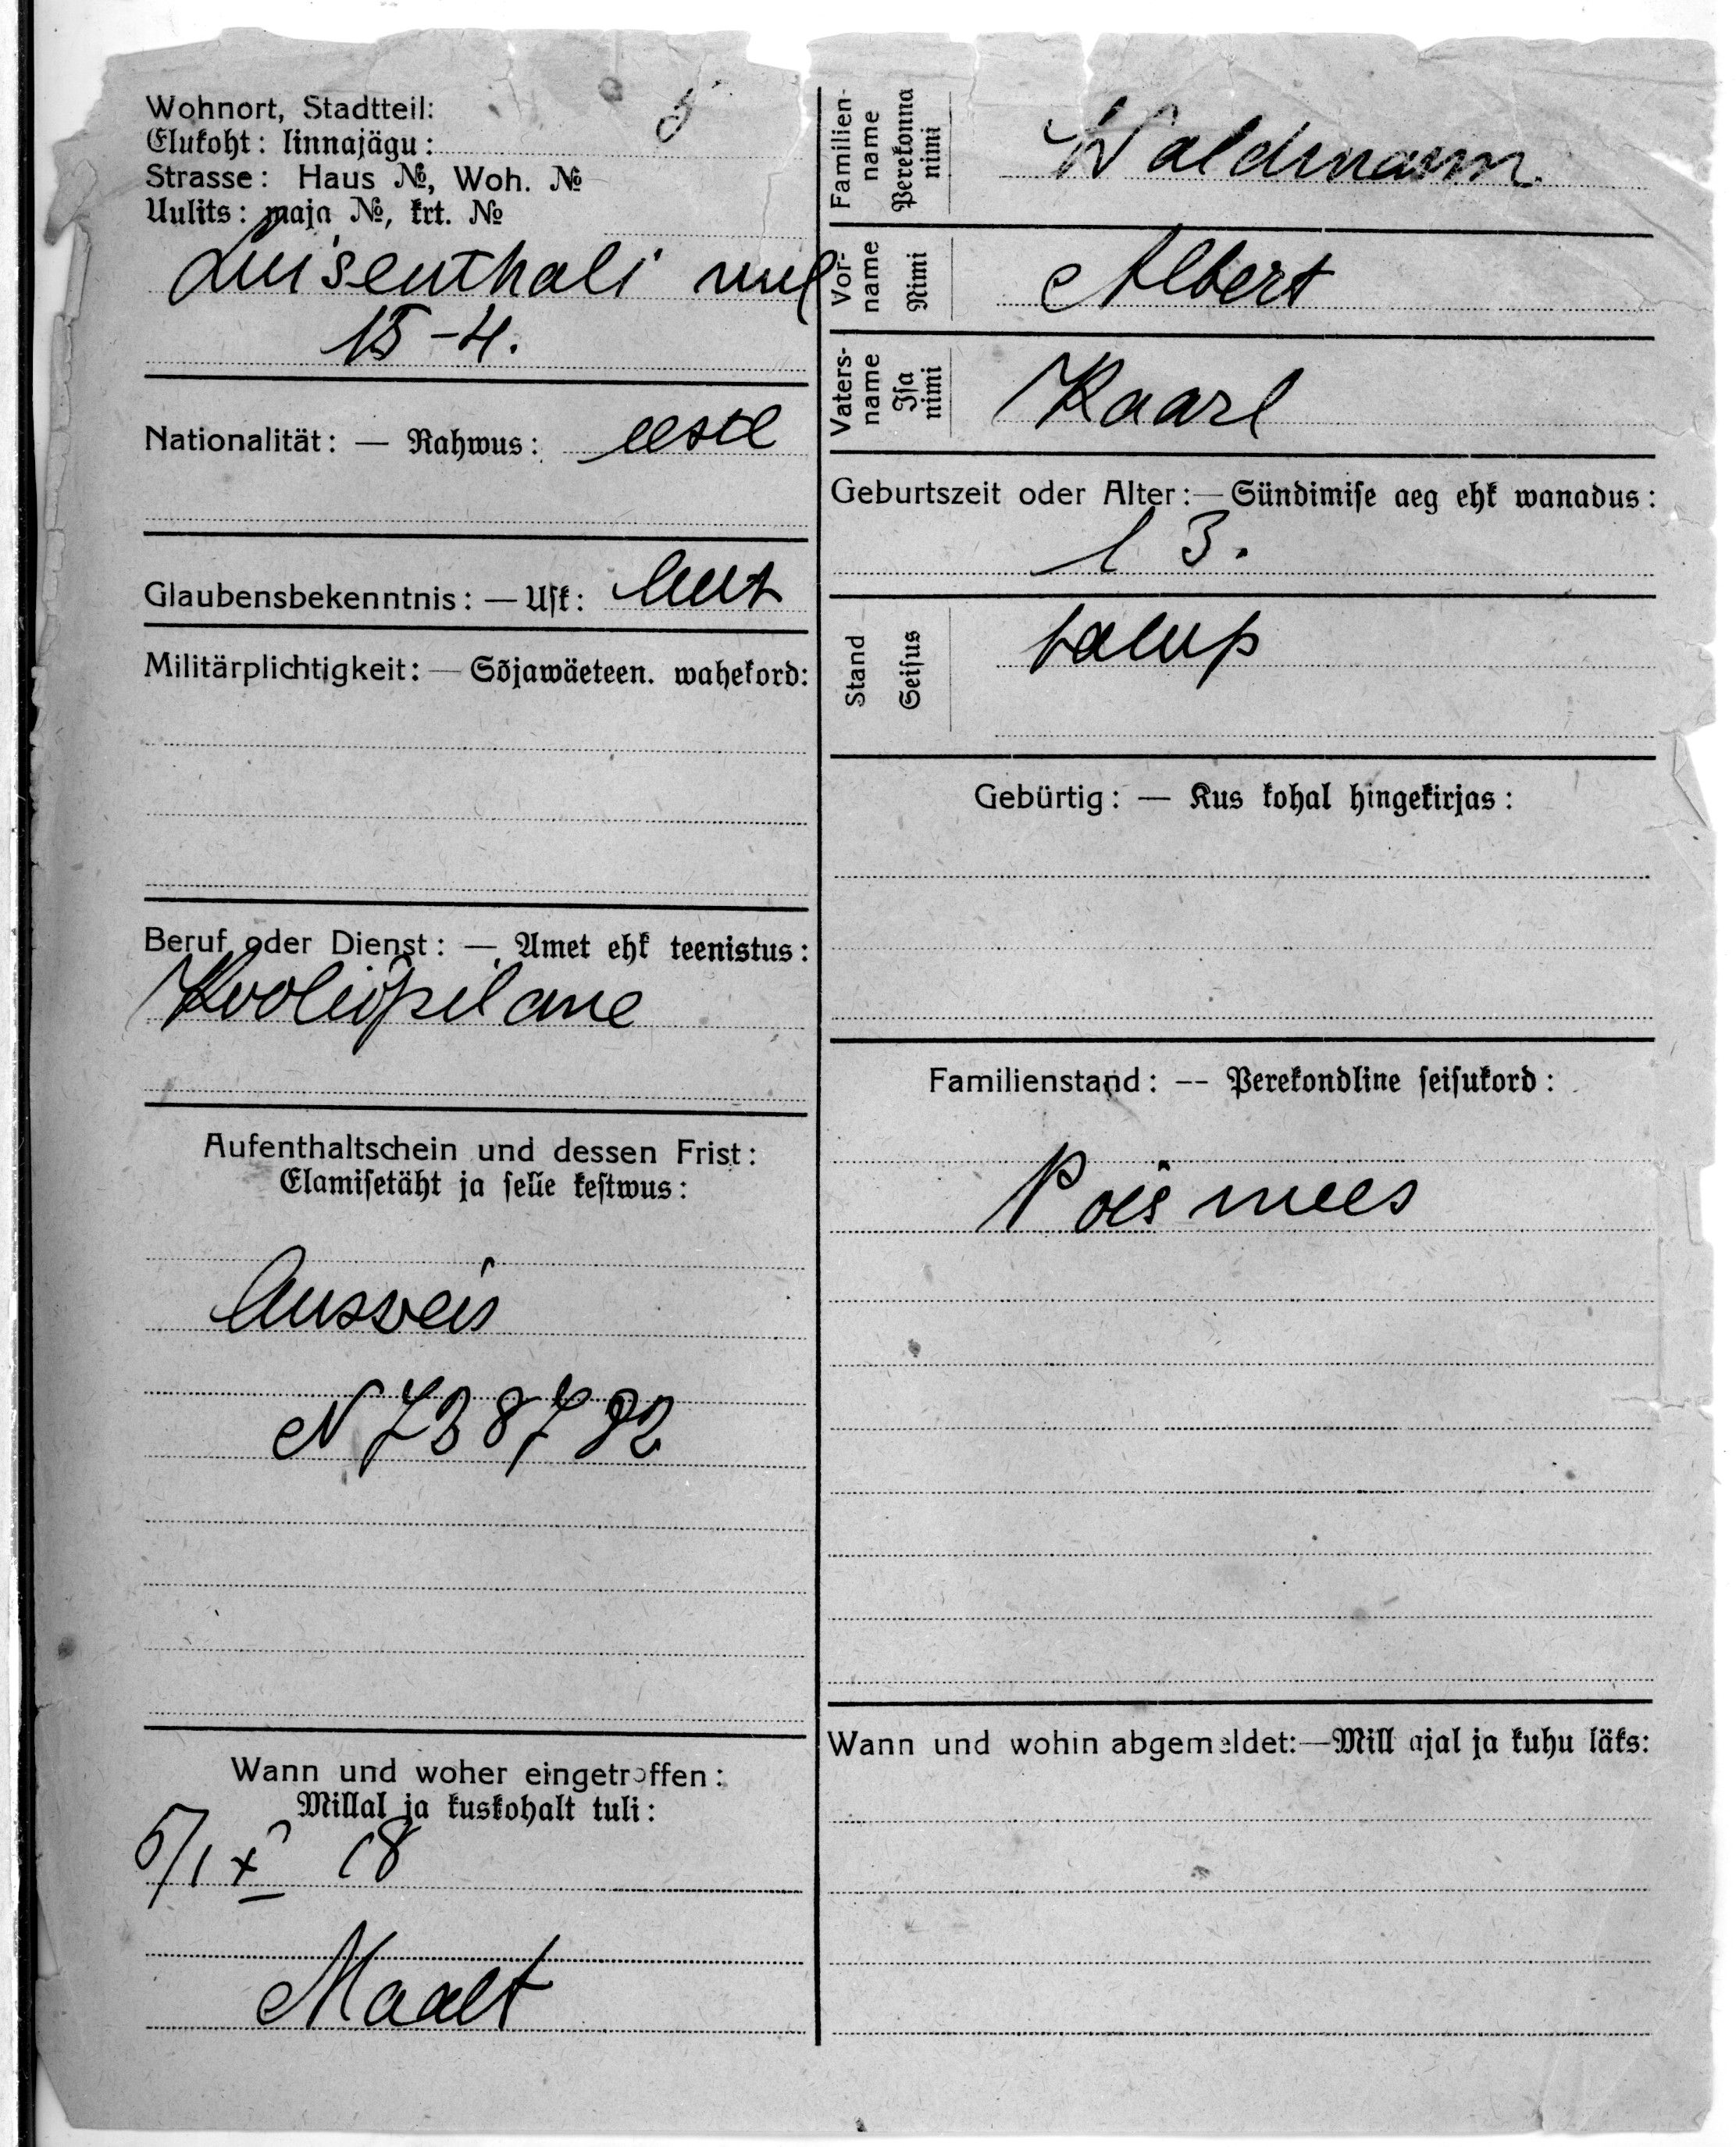 Wohnort, Stadtteil:
Elukoht: linnajägu: 5
Strasse: Haus №, Woh. №
Uulits: maja №, krt. №
Luisenthali uul
15-4.
Nationalität: — Rahwus: eestl
Glaubensbekenntnis: — Usk: luut
Militärplichtigkeit: — Sõjawäeteen. wahekord:
Beruf oder Dienst: — Amet ehk teenistus:
Kooliõpilane
Aufenthaltschein und dessen Frist:
Elamisetäht ja selle kestwus:
Ausveis
N 738792
Wann und woher eingetroffen:
Millal ja kuskohalt tuli:
5/IX 18
Maalt
Familien-name Perekonna nimi Waldmann.
Vor-name Nimi Albert
Vaters-name Isa nimi Kaarl
Geburtszeit oder Alter: — Sündimise aeg ehk wanadus:
13.
Stand Seisus talup
Gebürtig: — Kus kohal hingekirjas:
Familienstand: -- Perekondline seisukord:
Poismees
Wann und wohin abgemeldet:—Mill ajal ja kuhu läks: